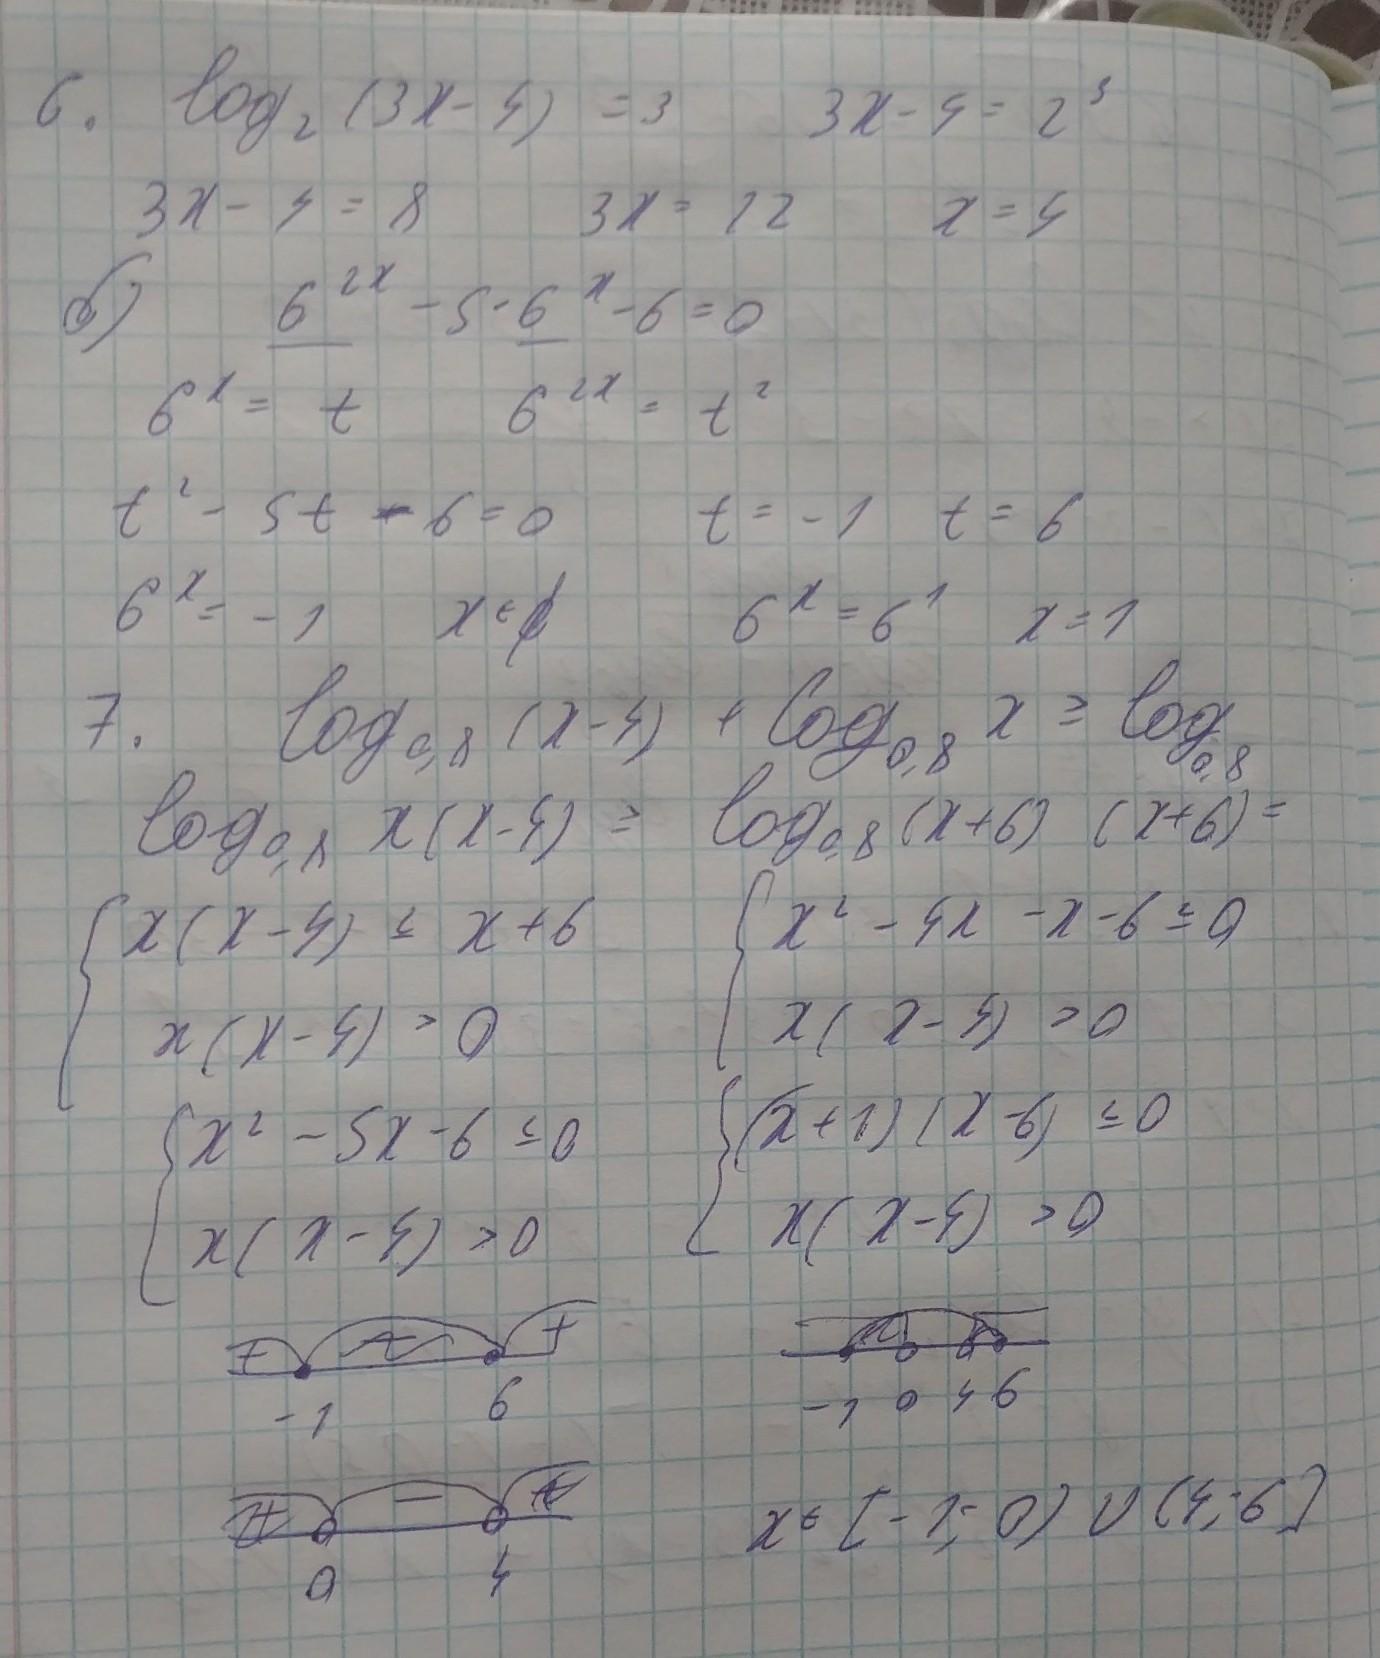 6. log₂ (3x - 4) = 3 3x - 4 = 2³
3x - 4 = 8 3x = 12 x = 4
б) 6²ˣ - 5 · 6ˣ - 6 = 0
6ˣ = t 6²ˣ = t²
t² - 5t - 6 = 0 t = -1 t = 6
6ˣ = -1 x ∈ ∅ 6ˣ = 6¹ x = 1
7. log₀,₈ (x - 4) + log₀,₈ x ≥ log₀,₈
log₀,₈ x(x - 4) ≥ log₀,₈ (x + 6) (x + 6) =
{ x(x - 4) ≤ x + 6 { x² - 4x - x - 6 ≤ 0
x(x - 4) > 0 x(x - 4) > 0
{ x² - 5x - 6 ≤ 0 { (x + 1)(x - 6) ≤ 0
x(x - 4) > 0 x(x - 4) > 0
+ - +
-1 6 -1 0 4 6
+ - + x ∈ [-1; 0) ∪ (4; 6]
0 4